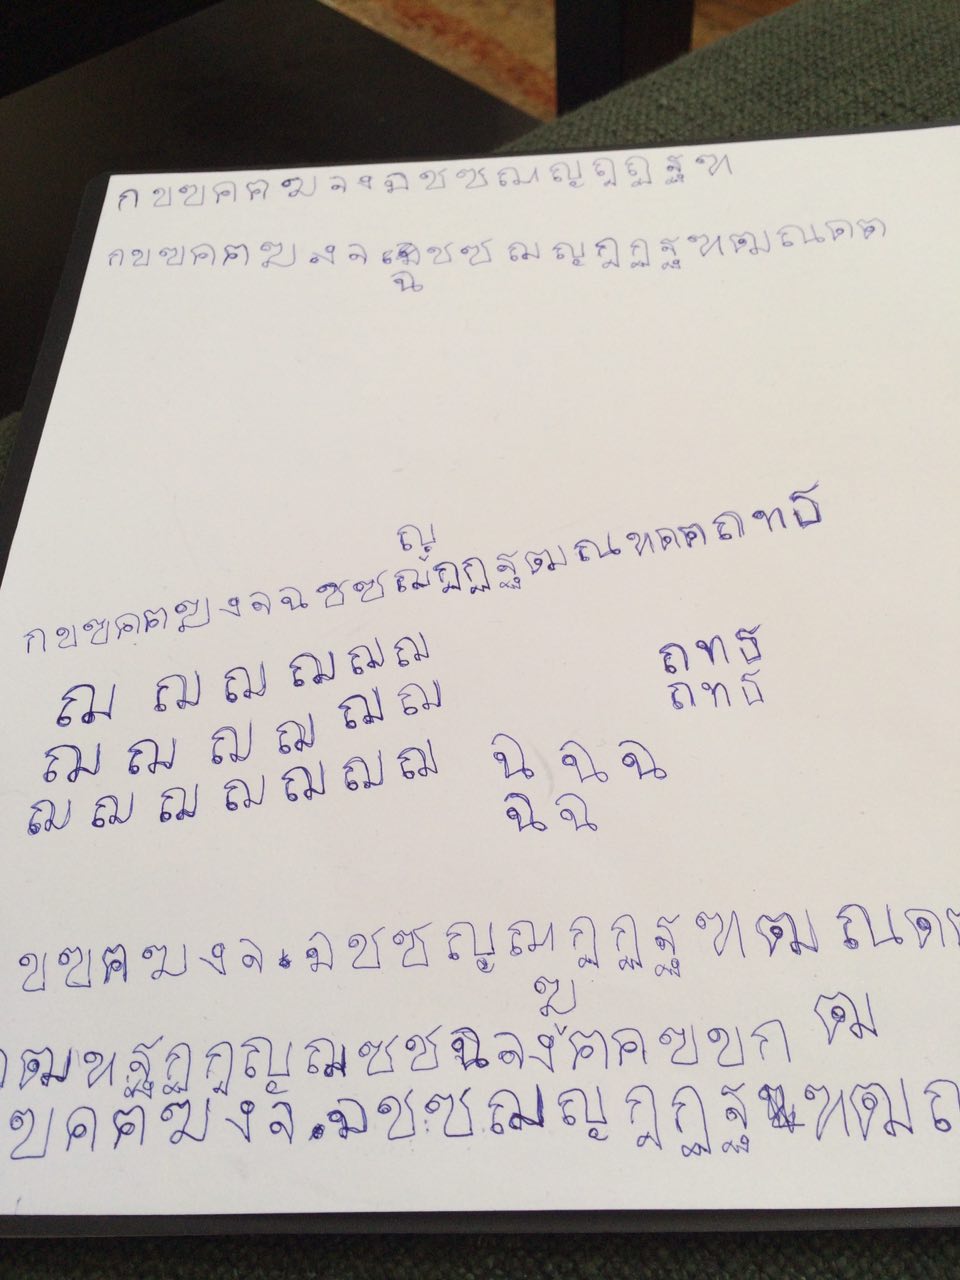 ก ข ฃ ค ฅ ฆ จ ง ฉ ช ซ ฌ ญ ฎ ฏ ฐ ฑ
ก ข ฃ ค ฅ ฆ ง จ ช ซ ฌ ญ ฎ ฏ ฐ ฑ ฒ ณ ด ต
ฉ
ญ
ก ข ฃ ค ฅ ฆ ง จ ฉ ช ซ ฌ ฎ ฏ ฐ ฒ ณ ท ด ต ถ ท ธ
ฌ ฌ ฌ ฌ ฌ ฌ
ถ ท ธ
ฌ ฌ ฌ ฌ ฌ ฌ
ถ ท ธ
ฌ ฌ ฌ ฌ ฌ ฌ ฌ
ฉ ฉ ฉ
ฉ ฉ
ข ฃ ฅ ฆ ง จ ฉ ช ซ ญ ฌ ฎ ฏ ฐ ฑ ฒ ณ ด ต
ฆ
ฒ ฑ ฐ ฏ ฎ ญ ฌ ซ ช ฉ จ ง ฅ ค ฃ ข ก ฒ
ข ค ฅ ฆ ง จ ฉ ช ซ ฌ ญ ฎ ฏ ฐ ฑ ฒ ณ